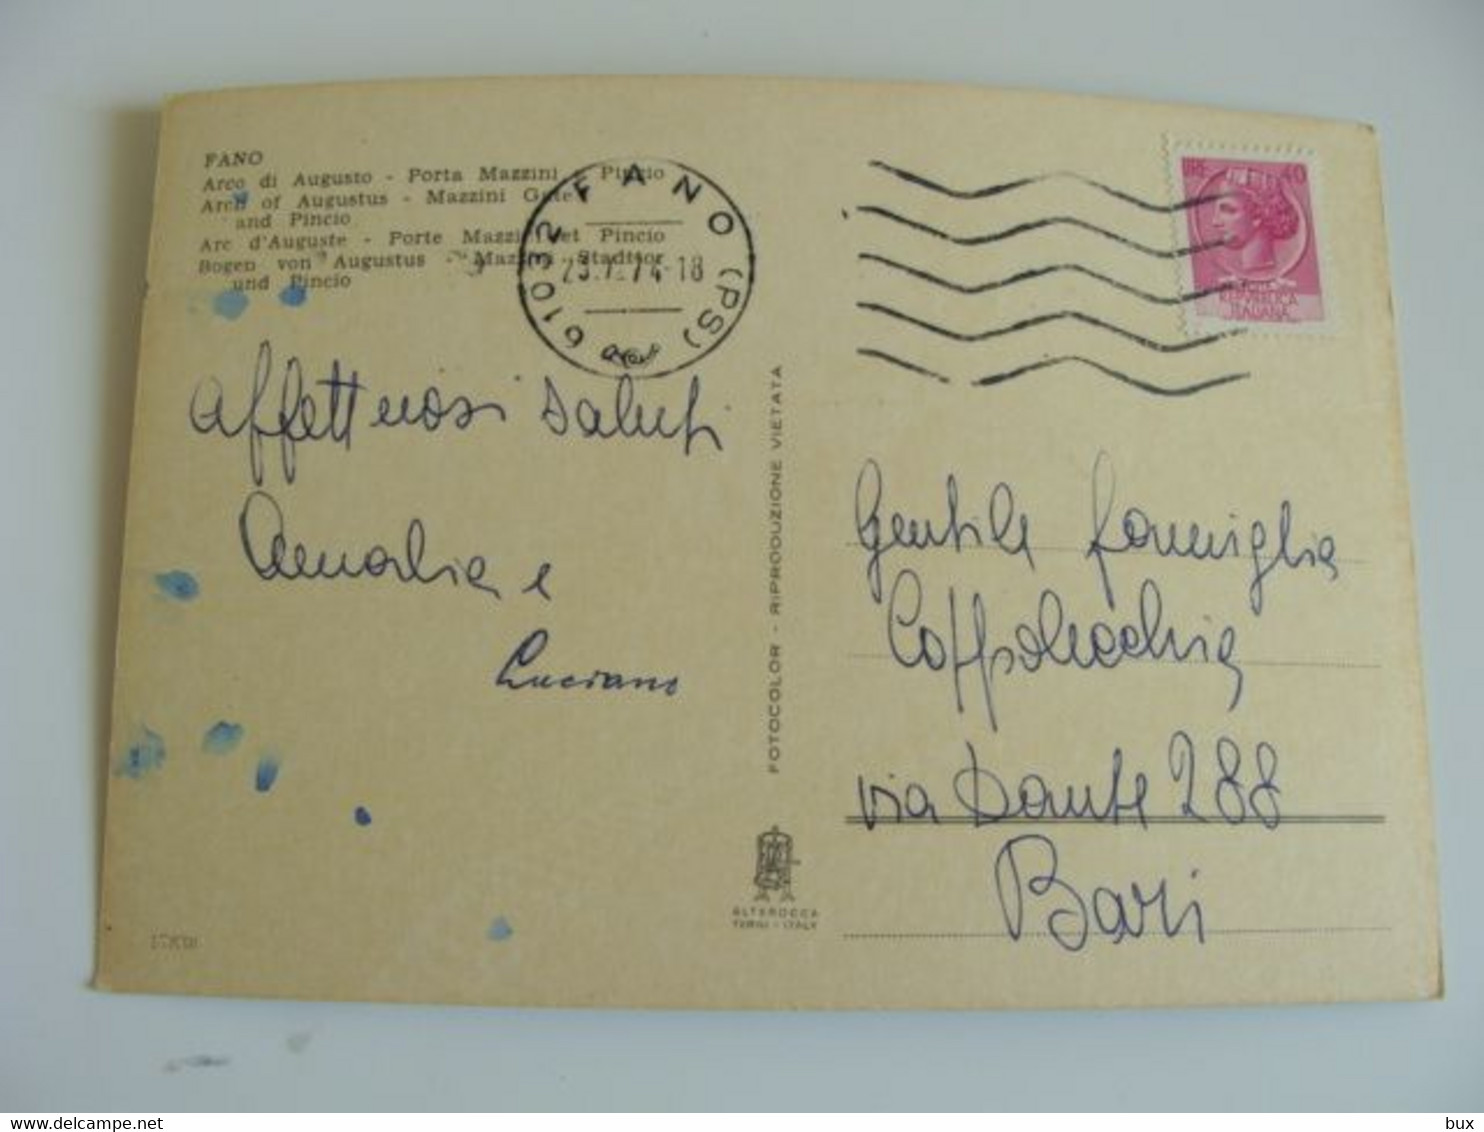 FANO
Arco di Augusto - Porta Mazzini e Pincio
Arch of Augustus - Mazzini Gate
and Pincio
Arc d'Auguste - Porte Mazzini et Pincio
Bogen von Augustus - Mazzini Stadttor
und Pincio
61032 FANO (PS)
74-18
LIRE 40
POSTE
REPUBBLICA
ITALIANA
Affettuosi saluti
Amalia e
Luciano
FOTOCOLOR - RIPRODUZIONE VIETATA
Gentile famiglia
Coppolecchia
via Dante 288
Bari
ALTEROCCA
TERNI - ITALY
bux